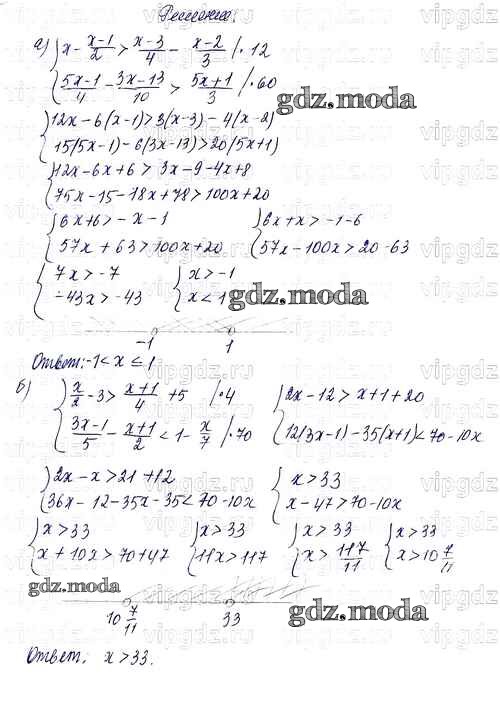 Решение.
а) { x - (x-1)/2 > (x-3)/4 - (x-2)/3 /·12
{ (5x-1)/4 - (3x-13)/10 > (5x+1)/3 /·60
gdz.moda
{ 12x-6(x-1)>3(x-3)-4(x-2)
{ 15(5x-1)-6(3x-13)>20(5x+1)
{ 12x-6x+6 > 3x-9-4x+8
{ 75x-15-18x+78>100x+20
{ 6x+6>-x-1 { 6x+x>-1-6
{ 57x+63>100x+20 { 57x-100x>20-63
{ 7x>-7 { x>-1
{ -43x>-43 { x<1
gdz.moda
-1 1
Ответ: -1<x≤1
б) { x/2 -3> (x+1)/4 +5 /·4 { 2x-12>x+1+20
{ (3x-1)/5 - (x+1)/2 < 1- x/7 /·70 { 12(3x-1)-35(x+1)<70-10x
{ 2x-x>21+12 { x>33
{ 36x-12-35x-35<70-10x { x-47>70-10x
{ x>33 { x>33 { x>33 { x>33
{ x+10x>70+47 { 11x>117 { x> 117/11 { x>10 7/11
gdz.moda
10 7/11 33
gdz.moda
Ответ: x>33.
vipgdz.ru